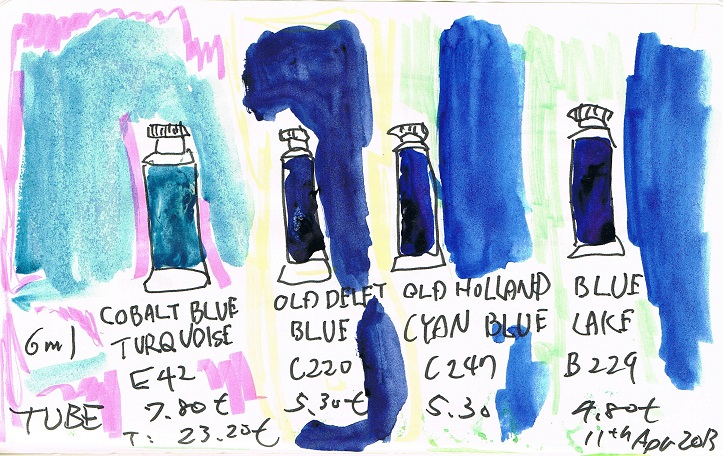 6ml
TUBE
COBALT BLUE
TURQUOISE
E42
7.80€
T: 23.20€
OLD DELFT
BLUE
C220
5.30€
OLD HOLLAND
CYAN BLUE
C247
5.30
BLUE
LAKE
B229
4.80€
11th Apr 2013